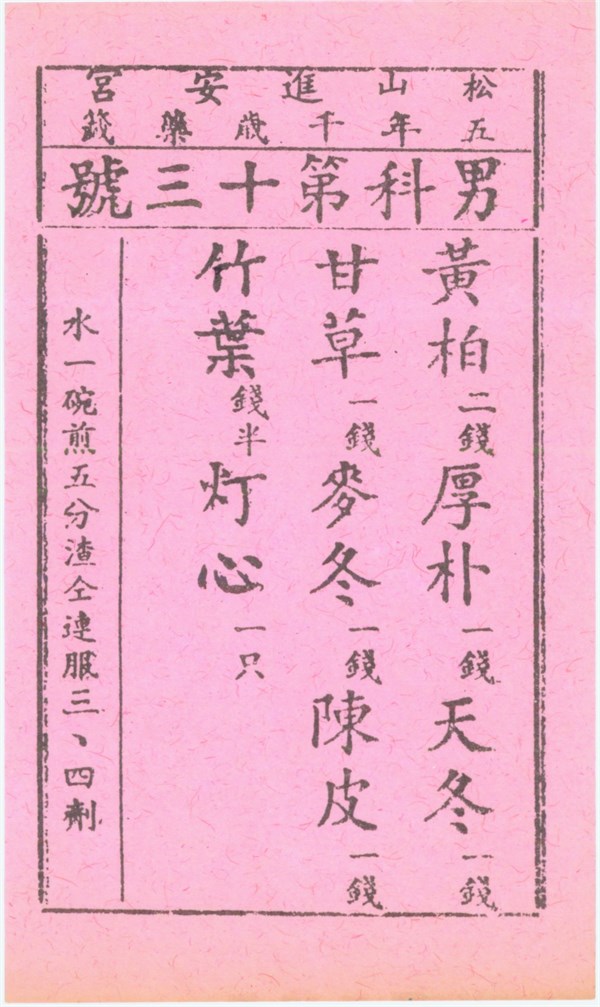 松山進安宮
五年千歲藥籤
男科第十三號
黃柏二錢厚朴一錢天冬一錢
甘草一錢麥冬一錢陳皮一錢
竹葉錢半灯心一只
水一碗煎五分渣仝連服三、四劑